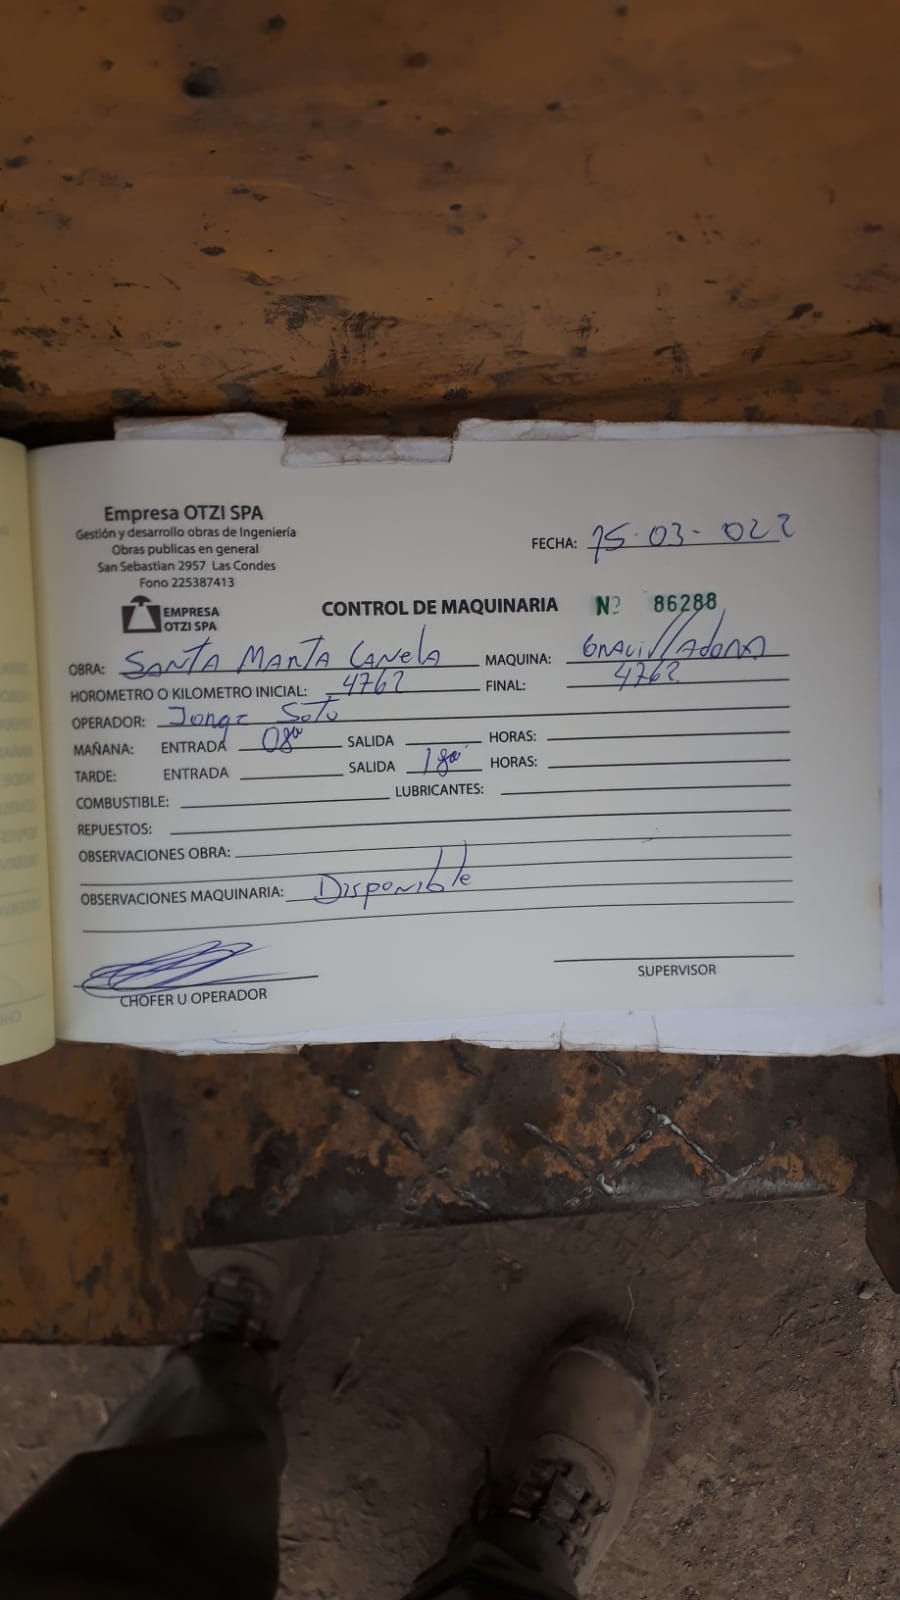 Empresa OTZI SPA
Gestión y desarrollo obras de Ingeniería
Obras publicas en general
San Sebastian 2957 Las Condes
Fono 225387413
EMPRESA
OTZI SPA
FECHA: 15-03-022
CONTROL DE MAQUINARIA Nº 86288
OBRA: SANTA MARTA CANELA MAQUINA: GRAVILLADORA
HOROMETRO O KILOMETRO INICIAL: 4762 FINAL: 4762
OPERADOR: Jorge Soto
MAÑANA: ENTRADA 08⁰⁰ SALIDA HORAS:
TARDE: ENTRADA SALIDA 18⁰⁰ HORAS:
COMBUSTIBLE: LUBRICANTES:
REPUESTOS:
OBSERVACIONES OBRA:
OBSERVACIONES MAQUINARIA: Disponible
CHOFER U OPERADOR
SUPERVISOR